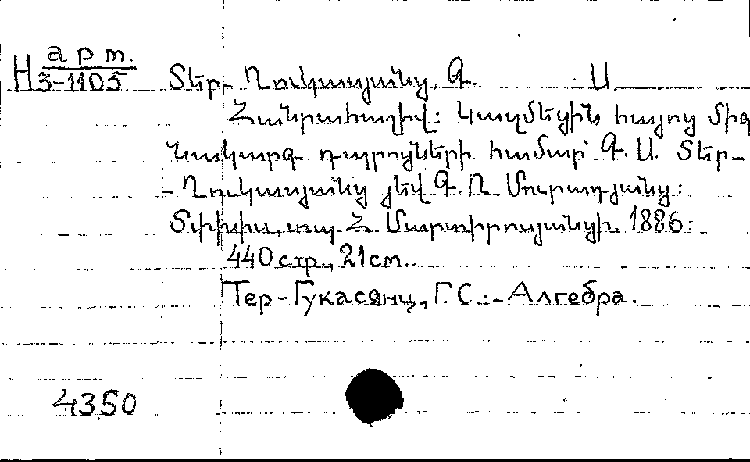 арт.
H 3-1105 Տեր-Ղուկասյանց, Գ. Ս
Հանրահաշիվ: Կազմեցին հայոց միջ
նակարգ դպրոցների համար Գ. Ս. Տեր-
-Ղուկասյանց յեվ Գ. Ղ. Մուրադյանց:
Տփխիս, տպ. Հ. Մարտիրոսյանցի 1886:
440 стр., 21 см..
Тер-Гукасянц, Г. С.:- Алгебра.
4350